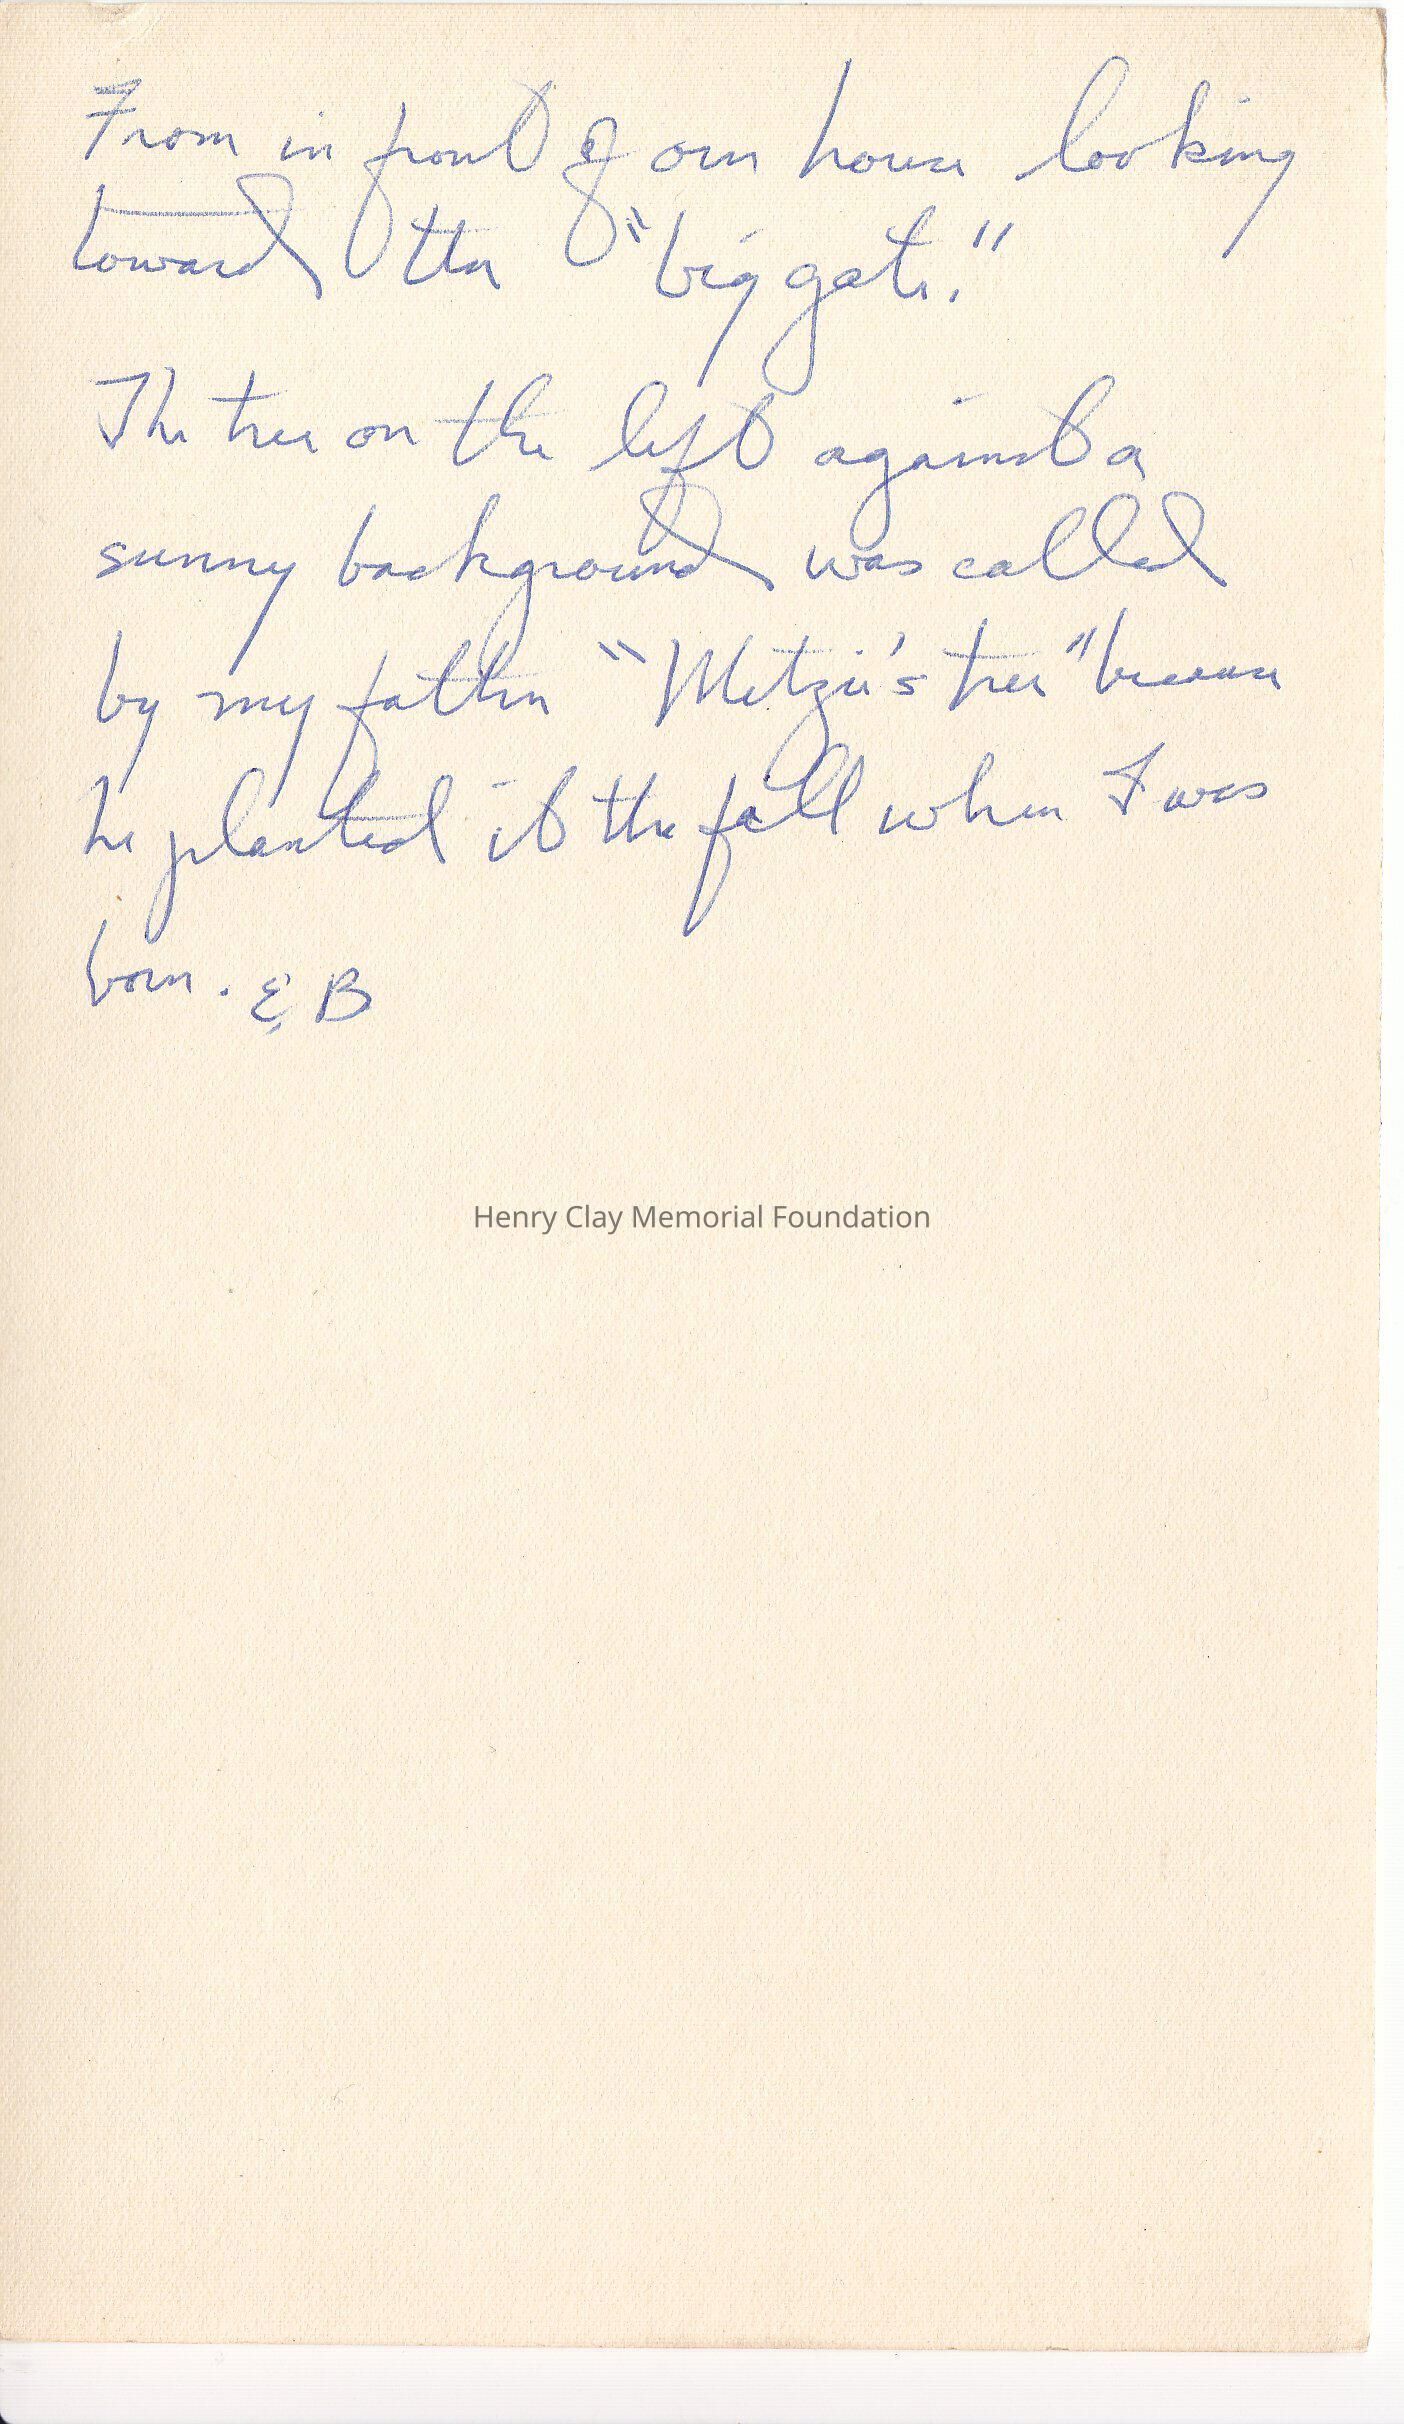 From in front of our house looking
toward the "big gate."
The tree on the left against a
sunny background was called
by my father "Metzie's tree" because
he planted it the fall when I was
born. EB
Henry Clay Memorial Foundation